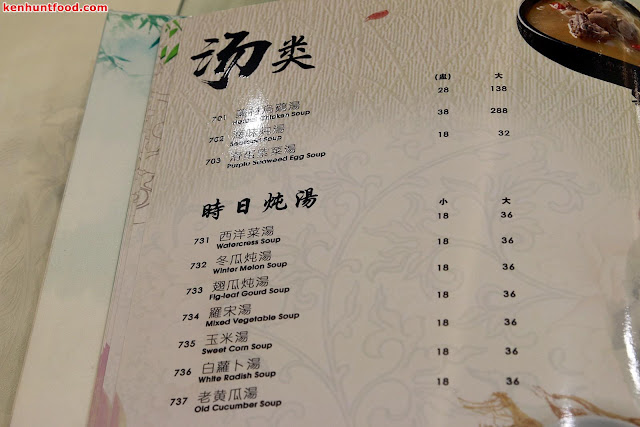 kenhuntfood.com
汤类
(盅) 大
701 鷄湯 28 138
Herbal Chicken Soup
702 海味炖湯 38 288
Seafood Soup
703 紫菜湯 18 32
Purplu Seaweed Egg Soup
時日炖湯
小 大
731 西洋菜湯 18 36
Watercress Soup
732 冬瓜炖湯 18 36
Winter Melon Soup
733 翅瓜炖湯 18 36
Fig-leaf Gourd Soup
734 羅宋湯 18 36
Mixed Vegetable Soup
735 玉米湯 18 36
Sweet Corn Soup
736 白蘿卜湯 18 36
White Radish Soup
737 老黄瓜湯 18 36
Old Cucumber Soup